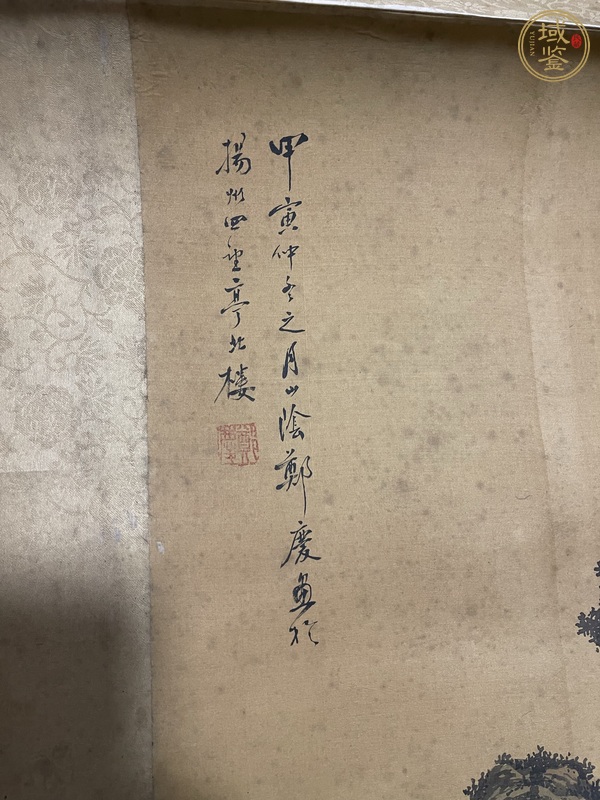 甲寅仲冬之月山陰鄭慶画於
揚州四望亭北樓
鄭慶
域鉴
YUJIAN